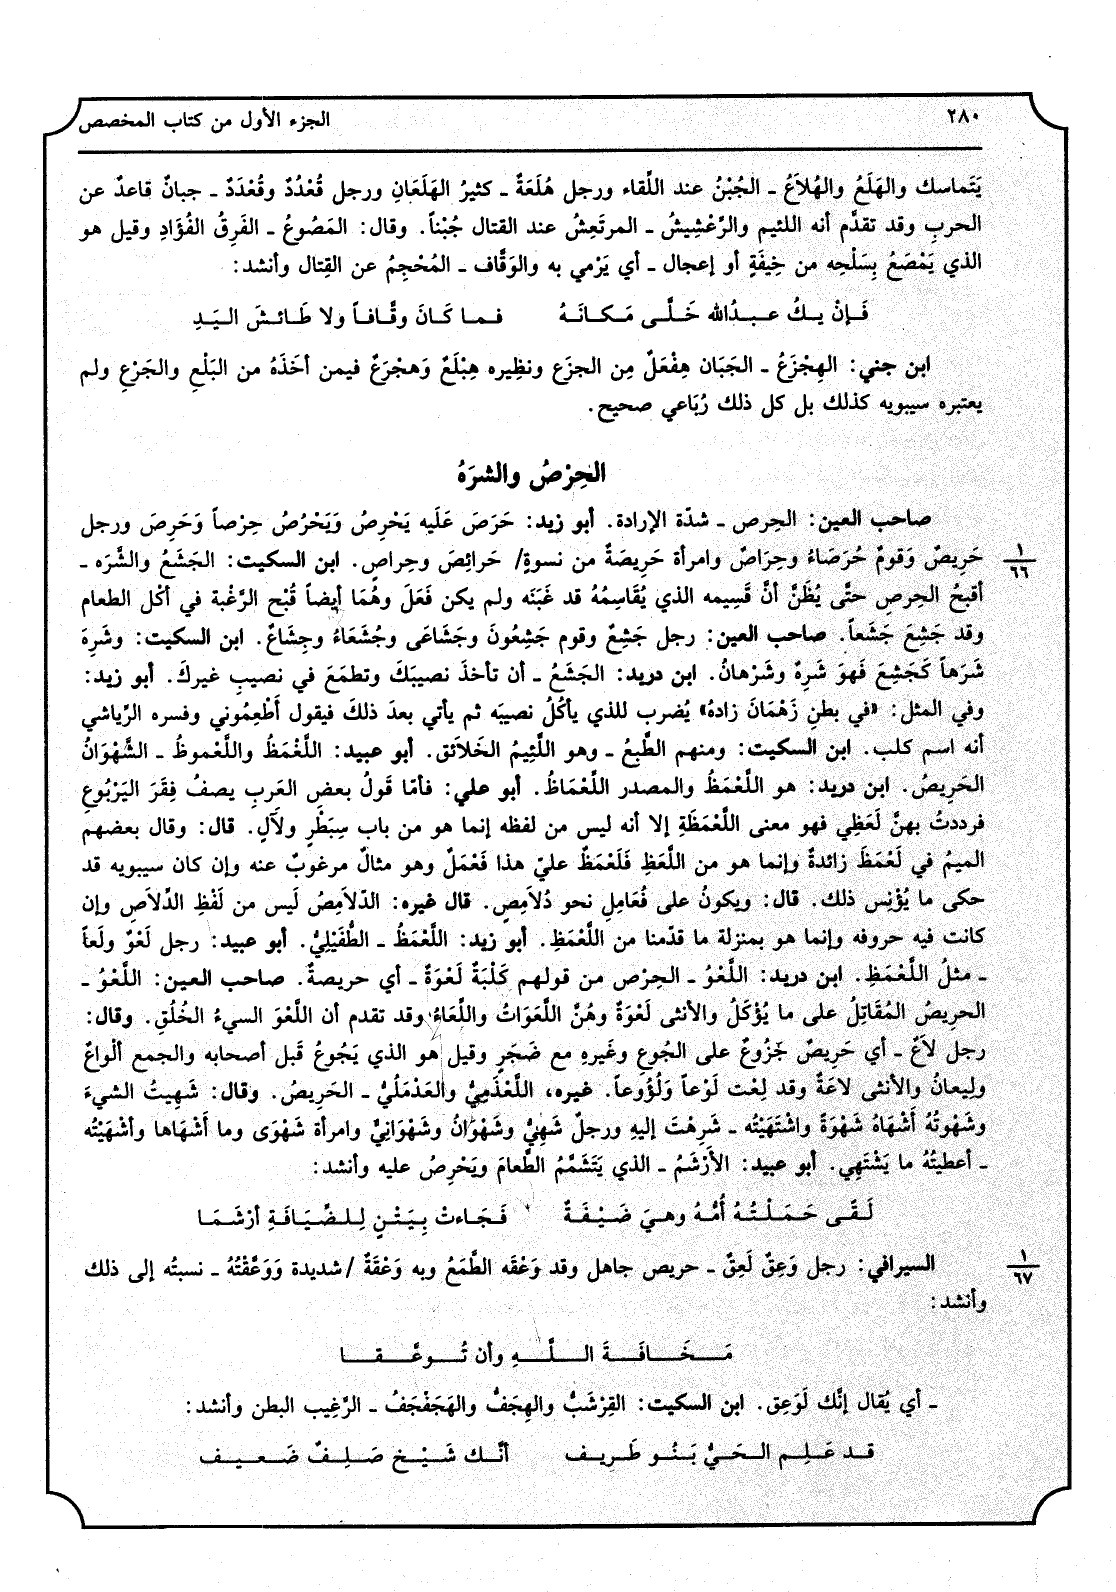 ٢٨٠
الجزء الأول من كتاب المخصص
يَتَماسك والهَلَعُ والهُلاَعُ ـ الجُبْنُ عند اللِّقاء ورجل هُلَعَةٌ ـ كثيرُ الهَلَعَانِ ورجل قُعْدُدٌ وقُعْدَدٌ ـ جبانٌ قاعدٌ عن
الحربِ وقد تقدَّم أنه اللئيم والرِّعْشِيشُ ـ المرتَعِشُ عند القتال جُبْناً. وقال: المَصُوعُ ـ الفَرِقُ الفُؤَادِ وقيل هو
الذي يَمْصَعُ بِسَلْحِه من خِيفَةٍ أو إعجال ـ أي يَرْمي به والوَقَّاف ـ المُحْجِمُ عن القِتال وأنشد:
فَإِنْ يـكُ عـبـدُالله خَـلَّـى مَـكـانَـهُ فـمـا كَـانَ وقَّـافـاً ولا طَـائـشَ الـيَـدِ
ابن جني: الهِجْزَعُ ـ الجَبَان هِفْعَلٌ مِن الجزَع ونظِيره هِبْلَعٌ وَهجْرَعٌ فيمن أخَذَهُ من البَلْعِ والجَرْعِ ولم
يعتبره سيبويه كذلك بل كل ذلك رُبَاعي صحيح.
الحِرْصُ والشرَهُ
صاحب العين: الحِرص ـ شدّة الإرادة. أبو زيد: حَرَصَ عَلَيه يَحْرِصُ وَيَحْرُصُ حِرْصاً وَحَرِصَ ورجل
١
٦٦
حَرِيصٌ وَقومٌ حُرَصَاءُ وحِرَاصٌ وامرأة حَرِيصَةٌ من نسوةٍ/ حَرائِصَ وحِراصٍ. ابن السكيت: الجَشَعُ والشَّرَه ـ
أقبحُ الحِرصِ حتَّى يُظَنَّ أنَّ قَسِيمه الذي يُقَاسِمُهُ قد غَبَنَه ولم يكن فَعَلَ وهُمَا أيضاً قُبْح الرَّغْبة في أكْل الطعام
وقد جَشِعَ جَشَعاً. صاحب العين: رجل جَشِعٌ وقوم جَشِعُونَ وجَشَاعَى وجُشَعَاءُ وجِشَاعٌ. ابن السكيت: وشَرِهَ
شَرَهاً كَجَشِعَ فَهوَ شَرِهٌ وشَرْهانُ. ابن دريد: الجَشَعُ ـ أن تأخذَ نصيبَكَ وتطمَعَ في نصيبِ غيرك. أبو زيد:
وفي المثل: «في بطنِ زَهْمَانَ زادهُ» يُضرب للذي يأكُلُ نصيبَه ثم يأتي بعدَ ذلكَ فيقول أَطْعِمُوني وفسره الرِّياشي
أنه اسم كلب. ابن السكيت: ومنهم الطَّبِعُ ـ وهو اللَّئِيمُ الخَلَائق. أبو عبيد: اللَّعْمَظُ واللُّعْموظُ ـ الشَّهْوَانُ
الحَرِيصُ. ابن دريد: هو اللَّعْمَظُ والمصدر اللَّعْمَاظُ. أبو علي: فأمّا قَولُ بعضِ العَربِ يصفُ فِقَرَ اليَرْبُوعِ
فرددتُ بهنَّ لَعَظِي فهو معنى اللَّعْمَظَةِ إلا أنه ليس من لفظه إنما هو من باب سِبَطْرٍ ولَآلٍ. قال: وقال بعضهم
الميمُ في لَعْمَظَ زائدةٌ وإنما هو من اللَّعَظِ فَلَعْمَظٌ عليّ هذا فَعْمَلٌ وهو مثالٌ مرغوبٌ عنه وإن كان سيبويه قد
حكى ما يُؤْنِس ذلك. قال: ويكونُ على فُعَامِلٍ نحو دُلاَمِصٍ. قال غيره: الدّلاَمِصُ لَيس من لَفْظِ الدِّلاَصِ وإن
كانت فيه حروفه وإنما هو بمنزلة ما قدّمنا من اللَّعْمَظِ. أبو زيد: اللَّعْمَظُ ـ الطُّفَيْلِيُّ. أبو عبيد: رجل لَعْوٌ ولَعاً
ـ مثلُ اللَّعْمَظِ. ابن دريد: اللَّعْوُ ـ الحِرْص من قولهم كَلْبَةٌ لَعْوَةٌ ـ أي حريصةٌ. صاحب العين: اللَّعْوُ ـ
الحرِيصُ المُقَاتِلُ على ما يُؤْكَلُ والأنثى لَعْوَةٌ وهُنَّ اللَّعَوَاتُ واللِّعَاءُ وقد تقدم أن اللَّعْوَ السيءُ الخُلُقِ. وقال:
رجل لاَعٌ ـ أي حَرِيصٌ جَزُوعٌ على الجُوعِ وغَيرِهِ مع ضَجَرٍ وقيل هو الذي يَجُوعُ قَبل أصحابه والجمع ألْواعٌ
ولِيعانُ والأنثى لاعَةٌ وقد لِعْت لَوْعاً وَلُؤُوعاً. غيره، اللَّعْذَمِيُّ والعَذْمَلُيُّ ـ الحَرِيصُ. وقال: شَهِيتُ الشيءَ
وشَهْوتُهُ أَشْهَاهُ شَهْوَةً واشْتَهَيْتُه ـ شَرِهْتَ إليهِ ورجلٌ شَهِيٌّ وشَهْوَانُ وشَهْوَانِيٌّ وامرأة شَهْوَى وما أَشْهَاها وأشْهَيْتُه
ـ أعطيتُهُ ما يَشْتَهِي. أبو عبيد: الأَرْشَمُ ـ الذي يَتَشَمَّمُ الطَّعامَ ويَحْرِصُ عليه وأنشد:
لَـقًـى حَـمَـلَـتْـهُ أُمُّـهُ وهـيَ ضَـيْـفَـةٌ فَـجَـاءتْ بِـيَـتْـنٍ لِـلـضِّـيَـافَـةِ أرْشَـمَـا
١
٦٧
السيرافي: رجل وَعِقٌ لَعِقٌ ـ حريص جاهل وقد وَعْقَه الطَّمَعُ وبه وَعْقَةٌ /شديدة وَوَعَّقْتُهُ ـ نسبتُه إلى ذلك
وأنشد:
مَـــخَـــافَـــةَ الـــلَّـــهِ وأن تُـــوعَّـــقـــا
ـ أي يُقال إنَّك لَوَعِق. ابن السكيت: القِرْشَبُّ والهِجَفُّ والهَجَفْجَفُ ـ الرَّغِيب البطن وأنشد:
قـد عَـلِـم الـحَـيُّ بَـنُـو طَـرِيـف أنَّـك شَـيْـخ صَـلِـفٌ ضَـعـيـف